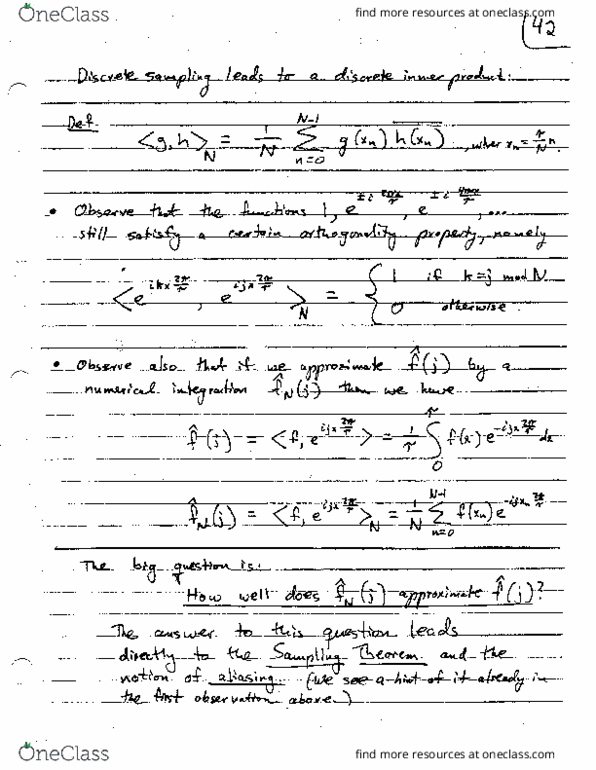 OneClass
find more resources at oneclass.com
42
Discrete sampling leads to a discrete inner product:
Def. <g,h>_N = 1/N Σ_{n=0}^{N-1} g(x_n) \overline{h(x_n)}, wher x_n = τ/N n.
• Observe that the functions 1, e^{±i 2πx/τ}, e^{±i 4πx/τ}, ...
still satisfy a certain orthogonality property, namely
<e^{ikx 2π/τ}, e^{ijx 2π/τ}>_N = { 1 if k=j mod N
0 otherwise.
• Observe also that if we approximate f̂(j) by a
numerical integration f̂_N(j) then we have
f̂(j) = <f, e^{ijx 2π/τ}> = 1/τ ∫_0^τ f(x)·e^{-ijx 2π/τ} dx
f̂_N(j) = <f, e^{ijx 2π/τ}>_N = 1/N Σ_{n=0}^{N-1} f(x_n) e^{-ijx_n 2π/τ}
The big question is:
How well does f̂_N(j) approximate f̂(j)?
The answer to this question leads
directly to the Sampling Theorem and the
notion of aliasing. (We see a hint of it already in
the first observation above.)
OneClass
find more resources at oneclass.com